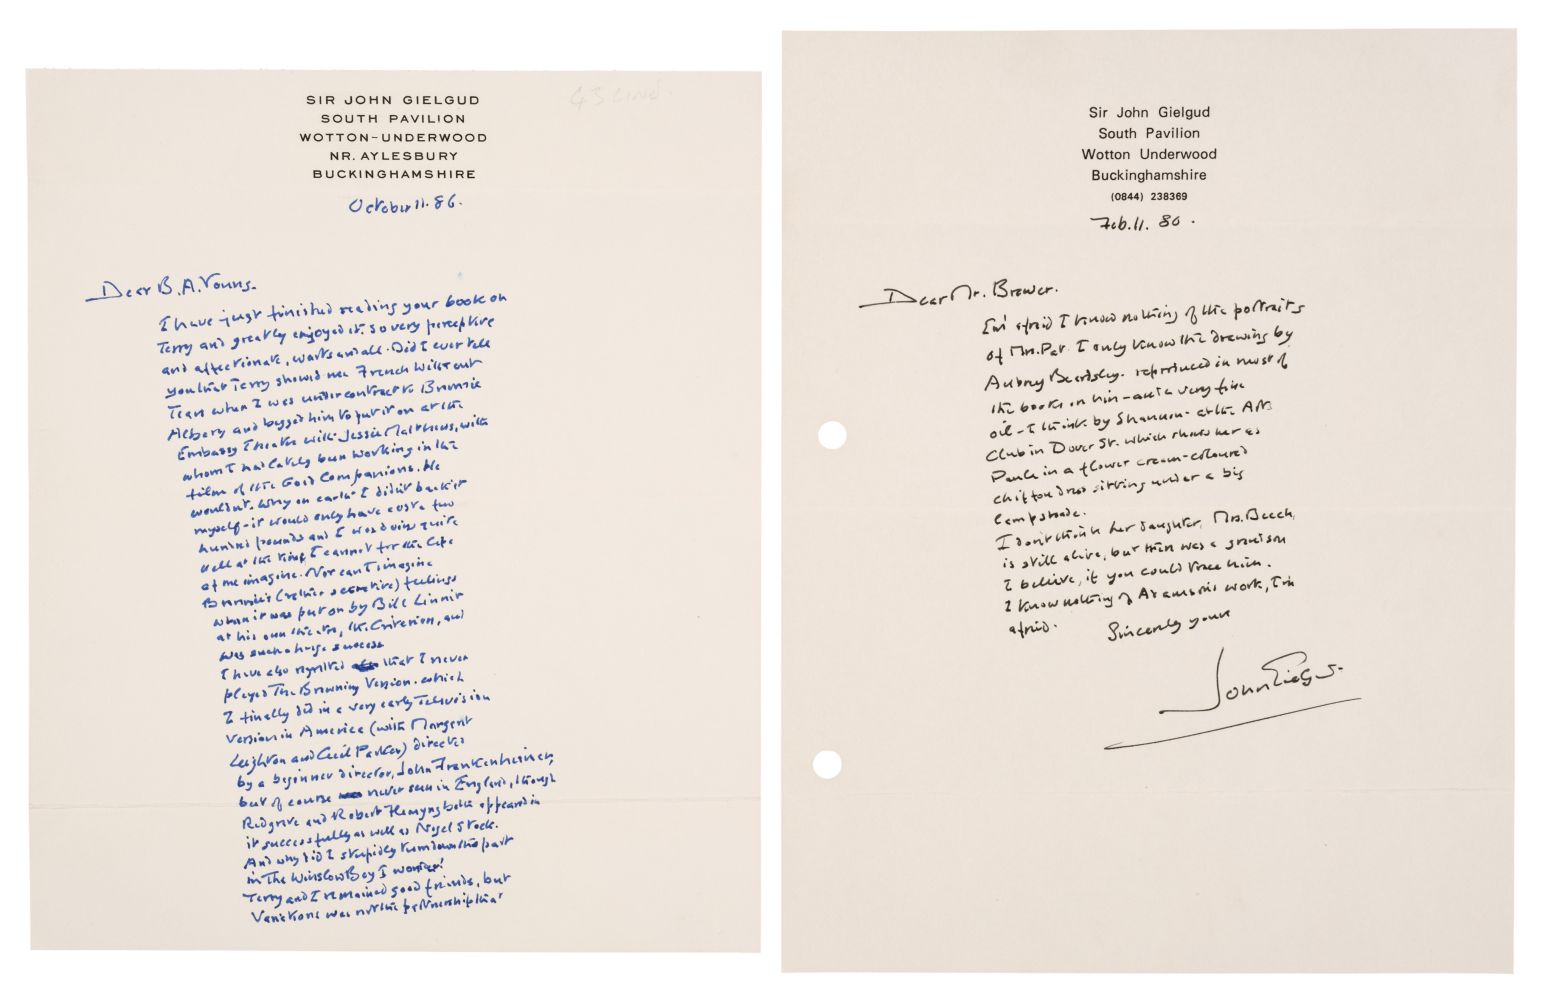 SIR JOHN GIELGUD
SOUTH PAVILION
WOTTON-UNDERWOOD
NR. AYLESBURY
BUCKINGHAMSHIRE
October 11. 86.
Dear B. A. Young.
I have just finished reading your book on
Terry and greatly enjoyed it. So very perceptive
and affectionate, warts and all. Did I ever tell
you that Terry showed me French Without
Tears when I was under contract to Bronnie
Albery and begged him to put it on at the
Embassy Theatre with Jessie Matthews, with
whom I had lately been working in the
film of the Good Companions. He
wouldn't. Why on earth I didn't back it
myself - it would only have cost a few
hundred pounds and I was doing quite
well at the time, I cannot for the life
of me imagine. Nor can I imagine
Bronnie's (rather secretive) feelings
when it was put on by Bill Linnit
at his own theatre, the Criterion, and
was such a huge success
I have also regretted that I never
played The Browning Version. which
I finally did in a very early Television
version in America (with Margaret
Leighton and Cecil Parker) directed
by a beginner director, John Frankenheimer,
but of course never seen in England, though
Redgrave and Robert Flemyng both appeared in
it successfully as well as Nigel Stock.
And why did I stupidly turn down the part
in The Winslow Boy I wonder!
Terry and I remained good friends, but
Variations was not the partnership that
Sir John Gielgud
South Pavilion
Wotton Underwood
Buckinghamshire
(0844) 238369
Feb. 11. 80.
Dear Mr. Brewer.
I'm afraid I know nothing of the portraits
of Mrs. Pat. I only know the drawing by
Aubrey Beardsley. reproduced in most of
the books on him - and a very fine
oil - I think by Shannon - at the Arts
Club in Dover St. which shows her as
Paula in a flower cream-coloured
chiffon dress sitting under a big
lampshade.
I don't think her daughter, Mrs. Beech,
is still alive, but there was a grandson
I believe, if you could trace him.
I know nothing of Adamson's work, I'm
afraid.
Sincerely yours
John Gielgud.